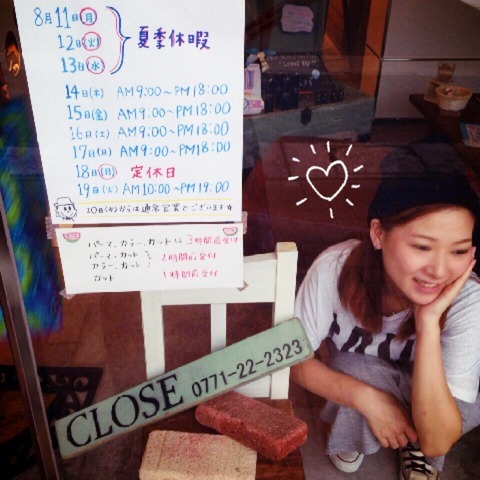 8月11日(月)
12日(火)
13日(水)
夏季休暇
14日(木) AM9:00〜PM18:00
15日(金) AM9:00〜PM18:00
16日(土) AM9:00〜PM18:00
17日(日) AM9:00〜PM18:00
18日(月) 定休日
19日(火) AM10:00〜PM19:00
20日(水)からは通常営業でございます☆
パーマ、カラー、カットは3時間前受付
パーマ、カット
カラー、カット
2時間前受付
カット 1時間前受付
CLOSE 0771-22-2323